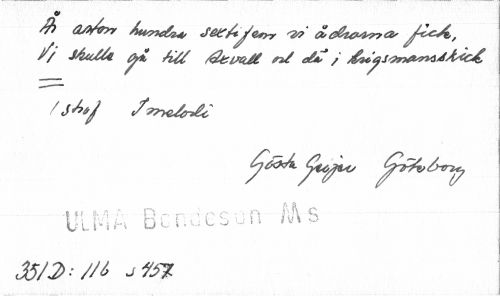 År aderton hundra sextifem vi ådrorna fick,
Vi skulle gå till Axvall od då i krigsmansskick
1 strof 1 melodi
Gösta Geijer Göteborg
ULMA Bondeson Ms
351D: 11b s 457